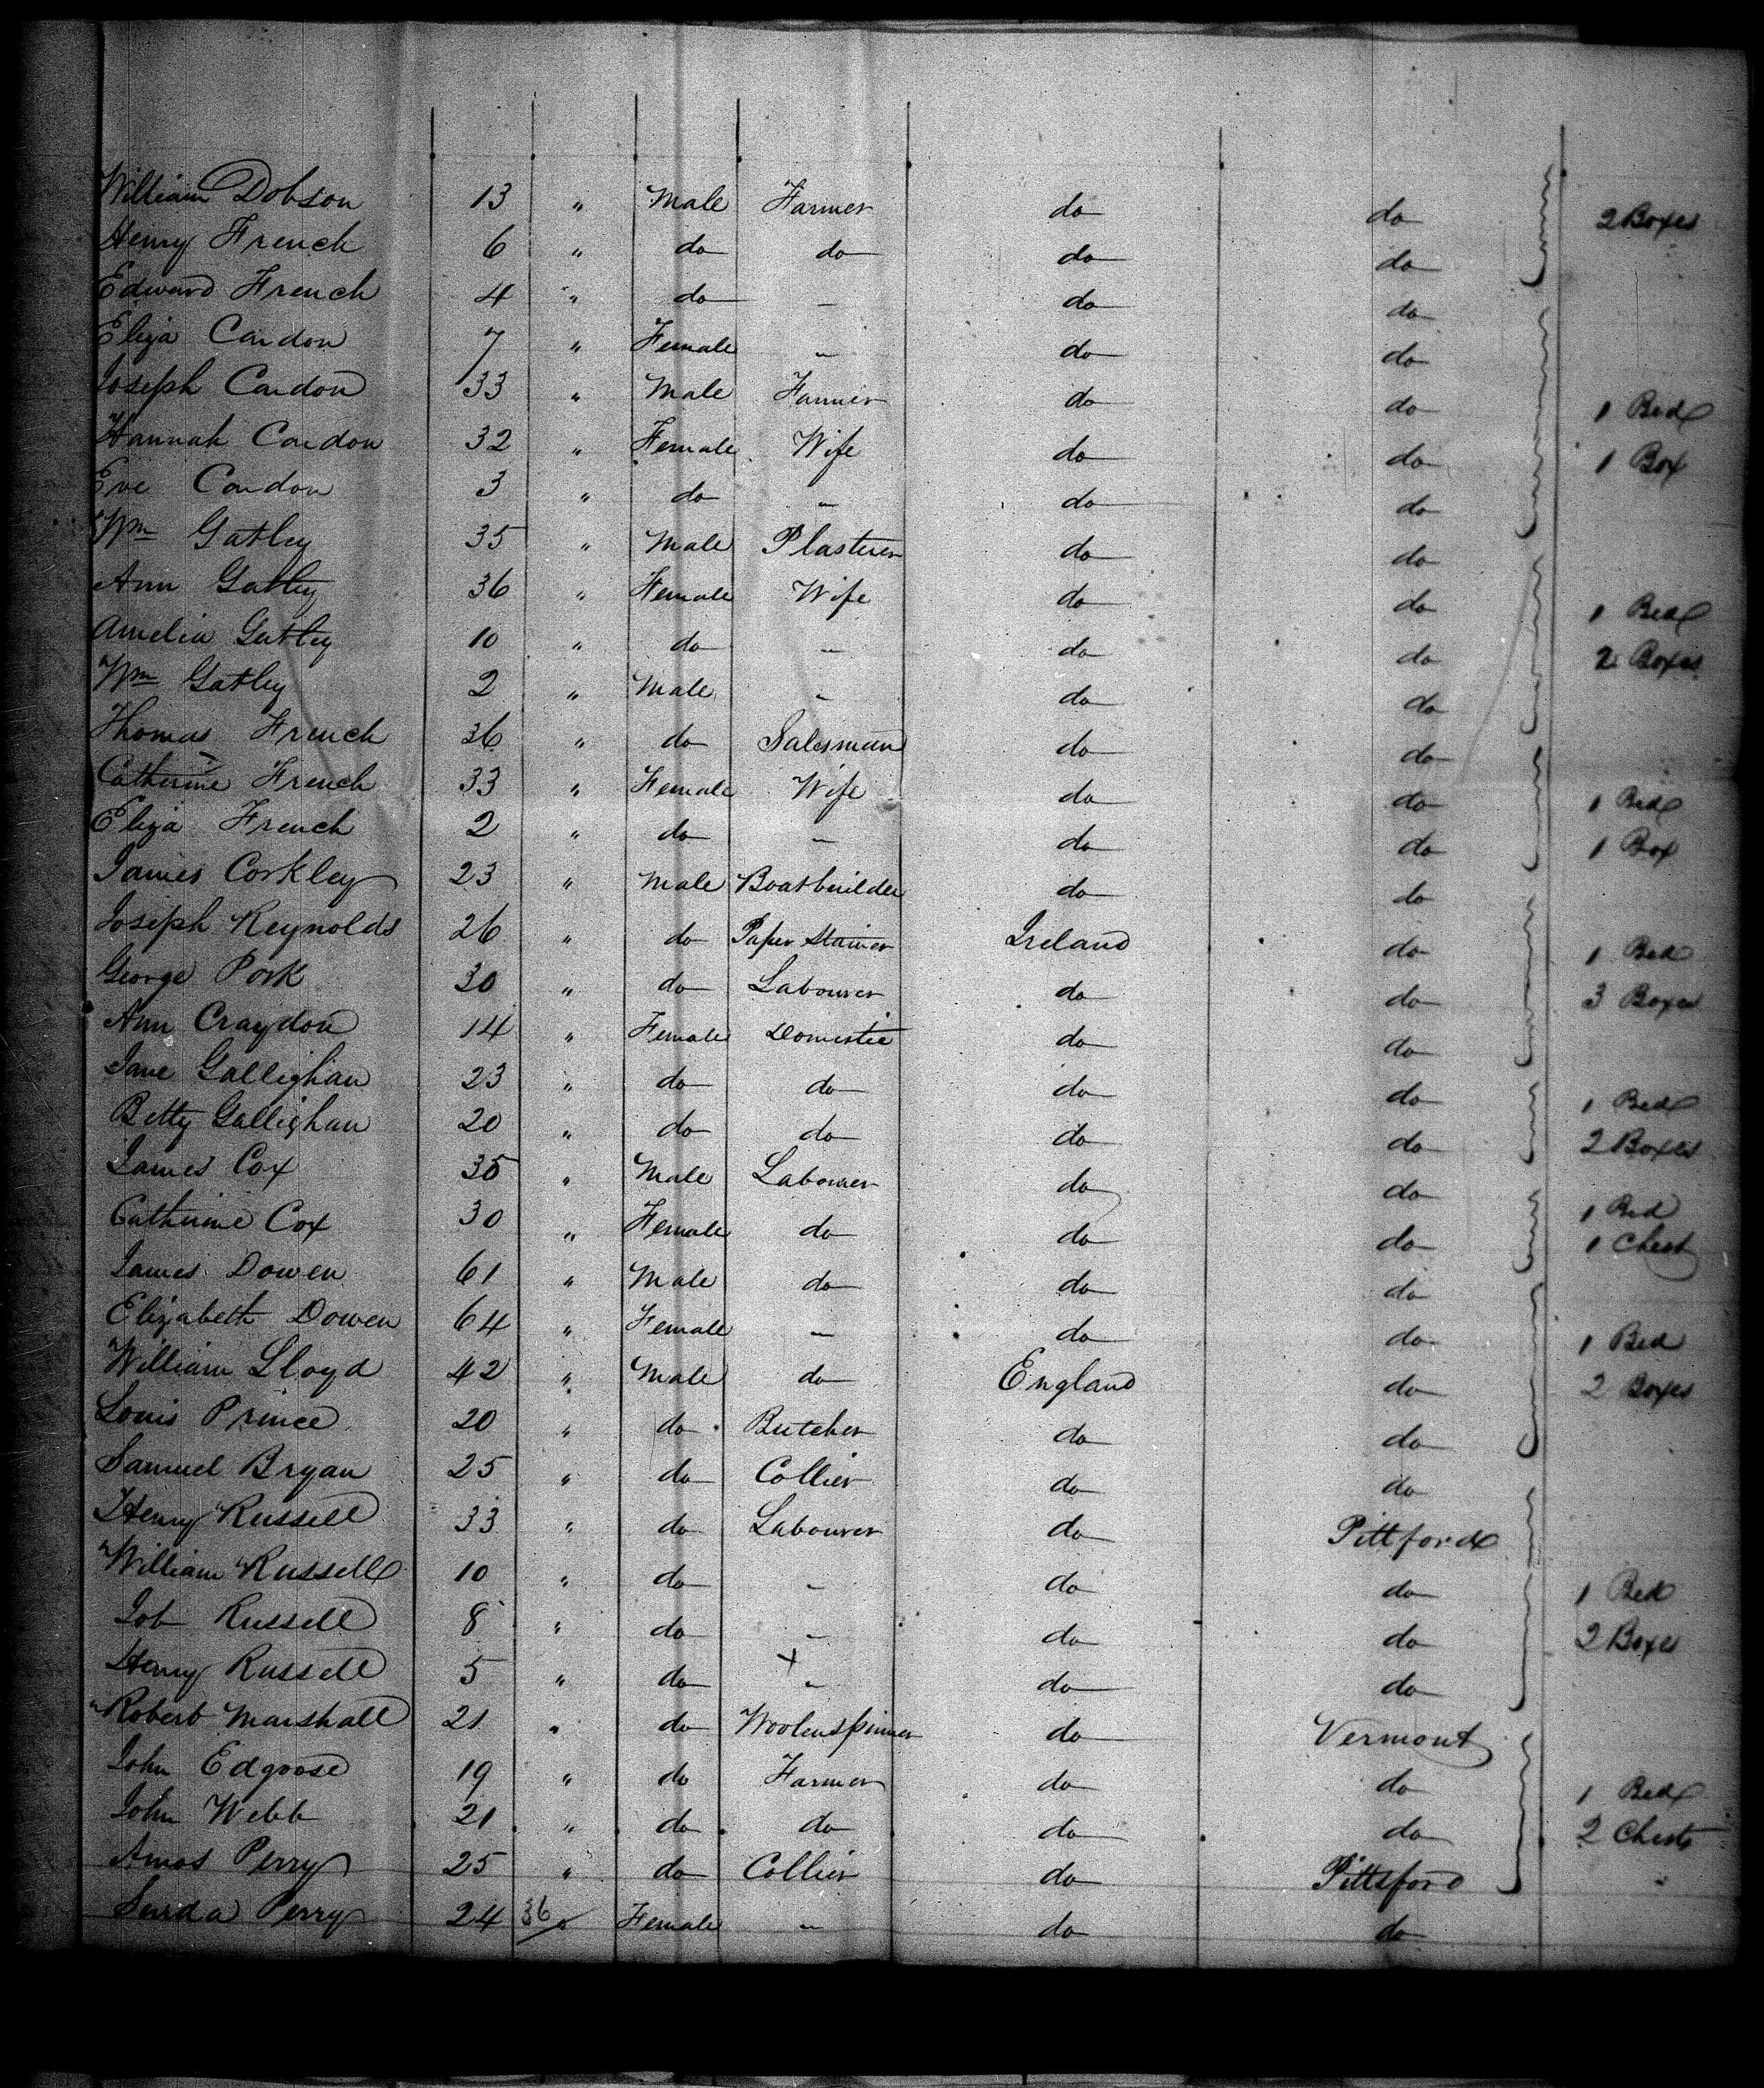 William Dobson 13 " Male Farmer do do 2 Boxes
Henry French 6 " do do do do
Edward French 4 " do - do do
Eliza Condon 7 " Female - do do
Joseph Condon 33 " Male Farmer do do 1 Bed
Hannah Condon 32 " Female Wife do do 1 Box
Eve Condon 3 " do - do do
Wm Gatley 35 " Male Plasterer do do
Ann Gatley 36 " Female Wife do do 1 Bed
Amelia Gatley 10 " do - do do 2 Boxes
Wm Gatley 2 " Male - do do
Thomas French 36 " do Salesman do do
Catherine French 33 " Female Wife do do 1 Bed
Eliza French 2 " do - do do 1 Box
James Corkley 23 " Male Boatbuilder do do
Joseph Reynolds 26 " do Paper Stainer Ireland do 1 Bed
George Pork 30 " do Labourer do do 3 Boxes
Ann Craydon 14 " Female Domestic do do
Jane Gallighan 23 " do do do do 1 Bed
Betty Gallighan 20 " do do do do 2 Boxes
James Cox 35 " Male Labourer do do 1 Bed
Catherine Cox 30 " Female do do do 1 Chest
James Dowen 61 " Male do do do
Elizabeth Dowen 64 " Female - do do 1 Bed
William Lloyd 42 " Male do England do 2 Boxes
Louis Prince 20 " do Butcher do do
Samuel Bryan 25 " do Collier do do
Henry Russell 33 " do Labourer do Pittford
William Russell 10 " do - do do 1 Bed
Job Russell 8 " do - do do 2 Boxes
Henry Russell 5 " do - do do
Robert Marshall 21 " do Woolenspinner do Vermont
John Edgoose 19 " do Farmer do do 1 Bed
John Webb 21 " do do do do 2 Chests
Amos Perry 25 " do Collier do Pittsford
Perry 24 36 " Female - do do